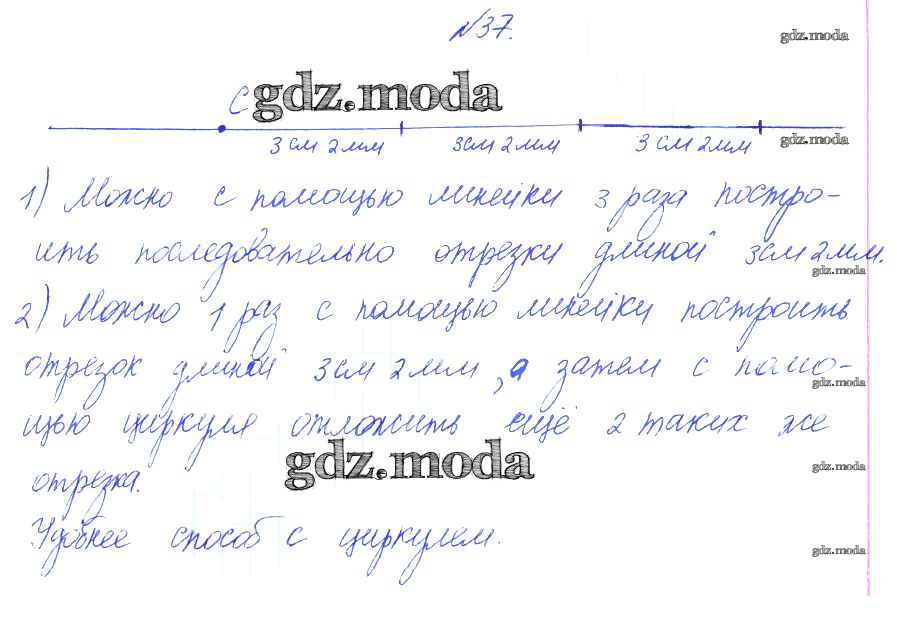 №37.
gdz.moda
C gdz.moda
3 см 2 мм 3 см 2 мм 3 см 2 мм gdz.moda
1) Можно с помощью линейки 3 раза постро-
ить последовательно отрезки длиной 3 см 2 мм.
gdz.moda
2) Можно 1 раз с помощью линейки построить
отрезок длиной 3 см 2 мм, а затем с помо-
gdz.moda
щью циркуля отложить ещё 2 таких же
gdz.moda gdz.moda
отрезка.
Удобнее способ с циркулем.
gdz.moda